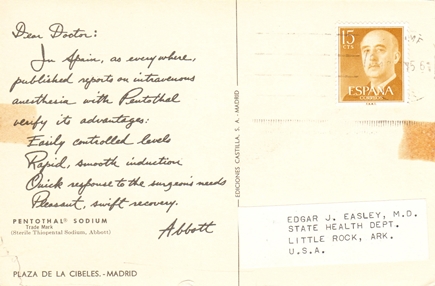 Dear Doctor:
In Spain, as everywhere,
published reports on intravenous
anesthesia with Pentothal
verify its advantages:
Easily controlled levels
Rapid, smooth induction
Quick response to the surgeon's needs
Pleasant, swift recovery.
Abbott
PENTOTHAL® SODIUM
Trade Mark
(Sterile Thiopental Sodium, Abbott)
PLAZA DE LA CIBELES.-MADRID
EDICIONES CASTILLA, S. A.-MADRID
15
CTS
ESPAÑA
CORREOS
EDGAR J. EASLEY, M.D.
STATE HEALTH DEPT.
LITTLE ROCK, ARK.
U.S.A.